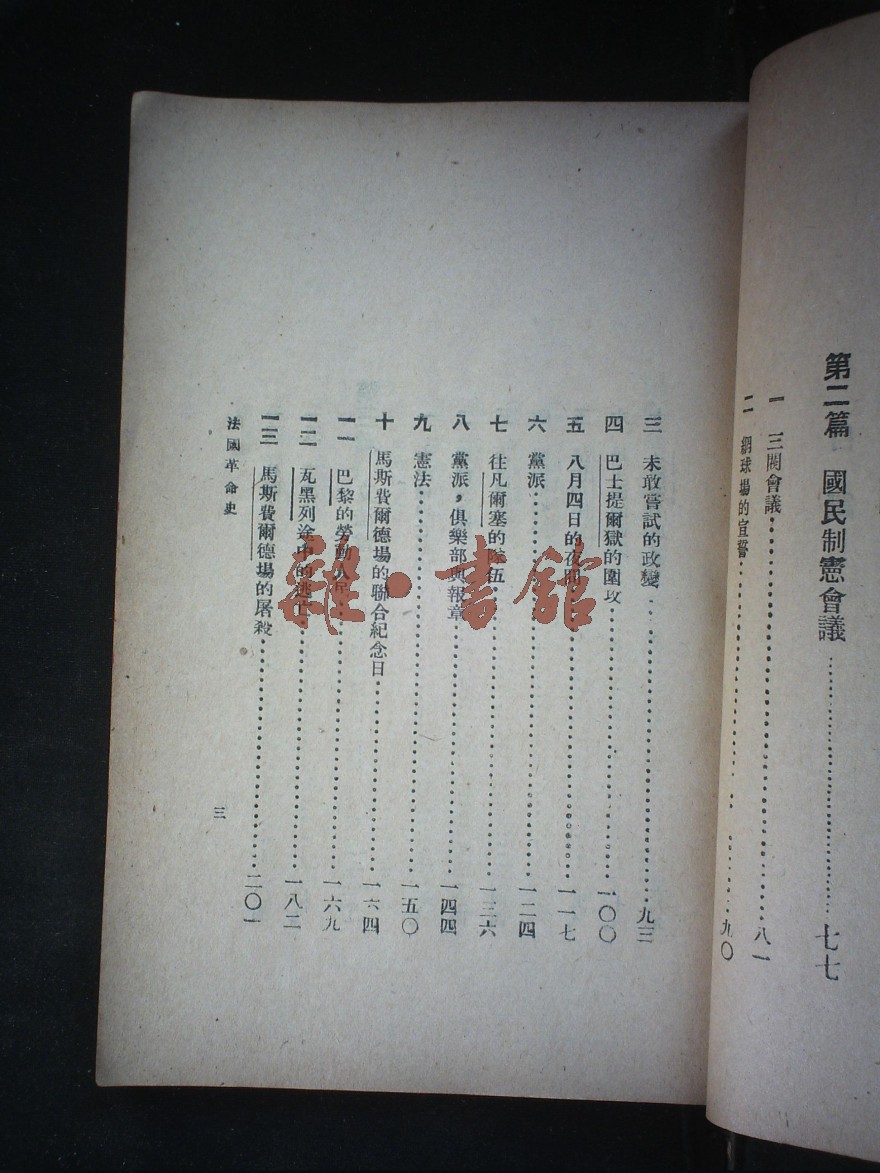 第二篇 國民制憲會議……七七
一 三閥會議……八一
二 網球場的宣誓……九〇
三 未敢嘗試的政變……九三
四 巴士提爾獄的圍攻……一〇〇
五 八月四日的夜間……一一七
六 黨派……一二四
七 往凡爾塞的隊伍……一三六
八 黨派，俱樂部與報章……一四四
九 憲法……一五〇
十 馬斯費爾德場的聯合紀念日……一六四
一一 巴黎的勞動人民……一六九
一二 瓦黑列途中的逃亡……一八二
一三 馬斯費爾德場的屠殺……二〇一
法國革命史
三
雜·書館